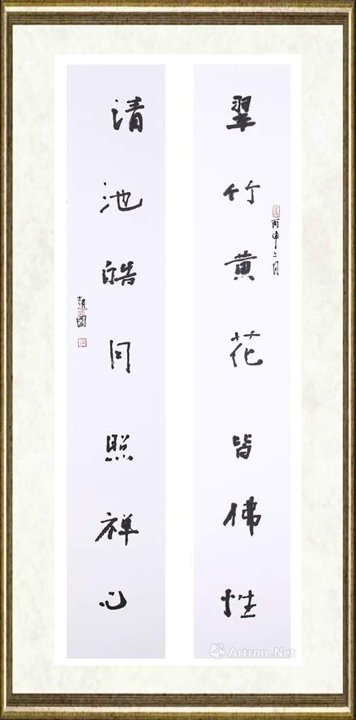 翠竹黄花皆佛性
丙申二月
清池皓月照禅心
Artron.Net